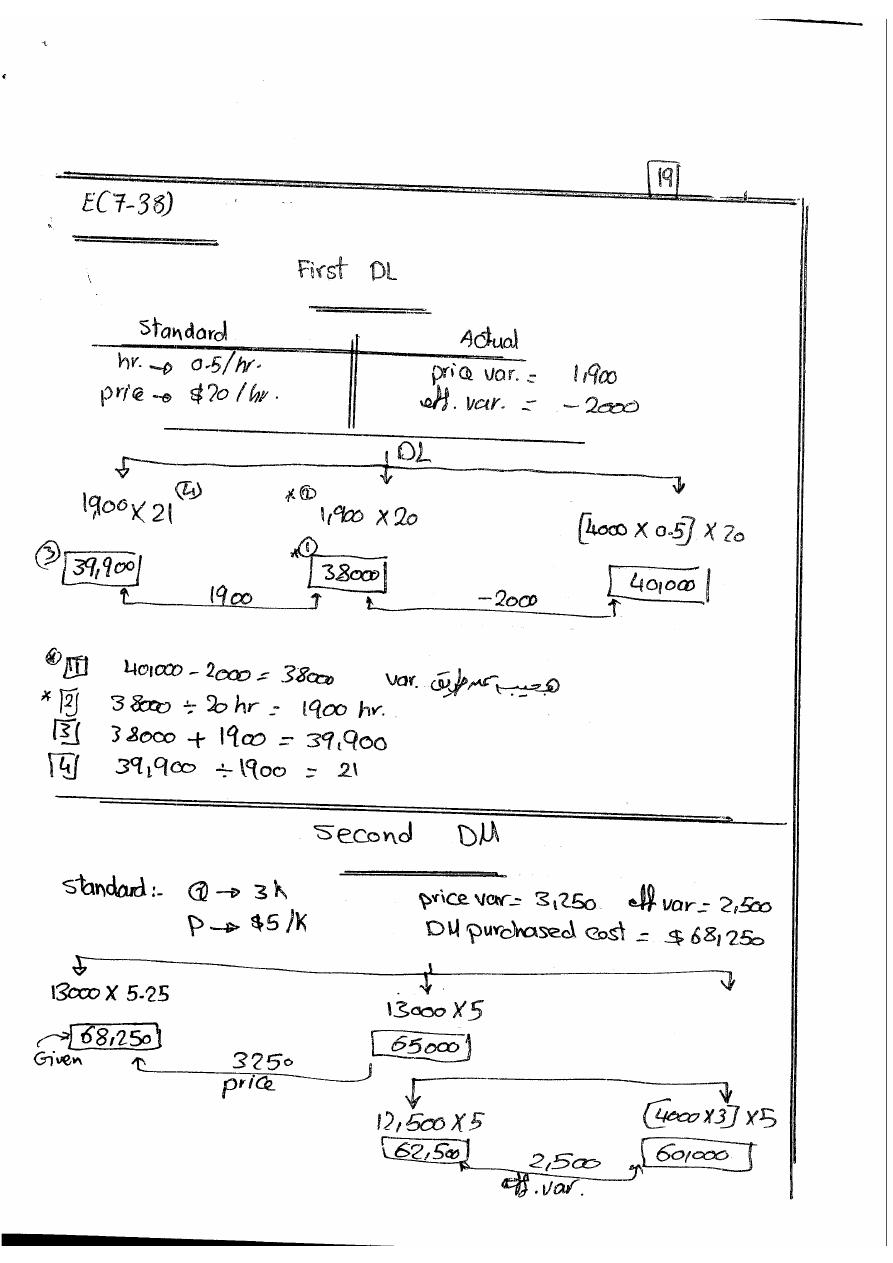 19
E(7-38)
First DL
Standard Actual
hr. → 0.5/hr. price var. = 1,900
price → $20/hr. eff. var. = -2000
DL
1,900 X 21 (4) *(2) 1,900 X 20 [4000 X 0.5] X 20
(3) 39,900 *(1) 38000 40,000
1900 -2000
* [1] 40,000 - 2000 = 38000 var.
* [2] 38000 ÷ 20 hr = 1900 hr.
[3] 38000 + 1900 = 39,900
[4] 39,900 ÷ 1900 = 21
Second DM
Standard:- Q → 3 K price var = 3,250 eff var = 2,500
P → $5/K DM purchased cost = $68,250
13000 X 5.25 13000 X 5
68,250 65000
Given 3250
price
12,500 X 5 [4000 X 3] X 5
62,500 60,000
2,500
eff. var.